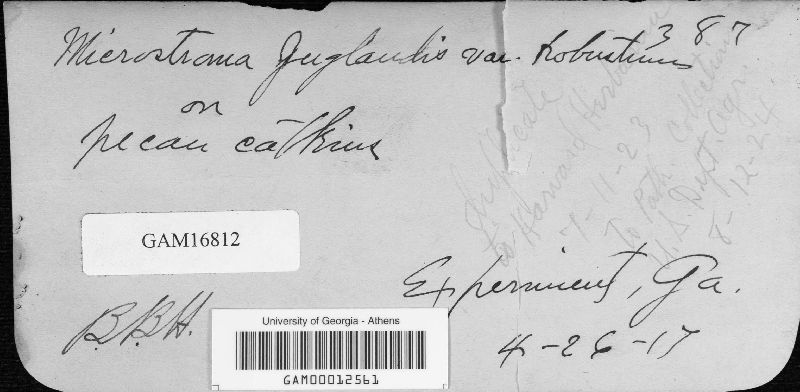 387
Microstroma Juglandis var. Robustum
on
pecan catkins
Duplicate
to Harvard Herbarium
7-11-23
To Path. Collections
U.S. Dept. Agri.
8-12-24
GAM16812
Experiment, Ga.
4-26-17
B.B.H.
University of Georgia - Athens
GAM00012561